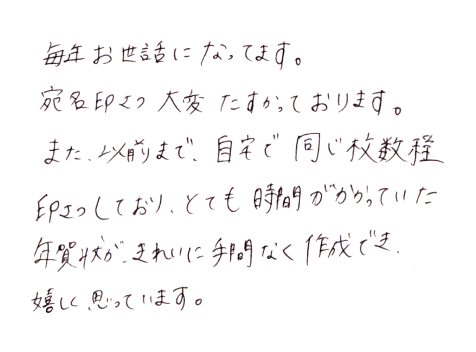 毎年お世話になってます。
宛名印さつ大変たすかっております。
また、以前まで、自宅で同じ枚数程
印さつしており、とても時間がかかっていた
年賀状が、きれいに手間なく作成でき、
嬉しく思っています。